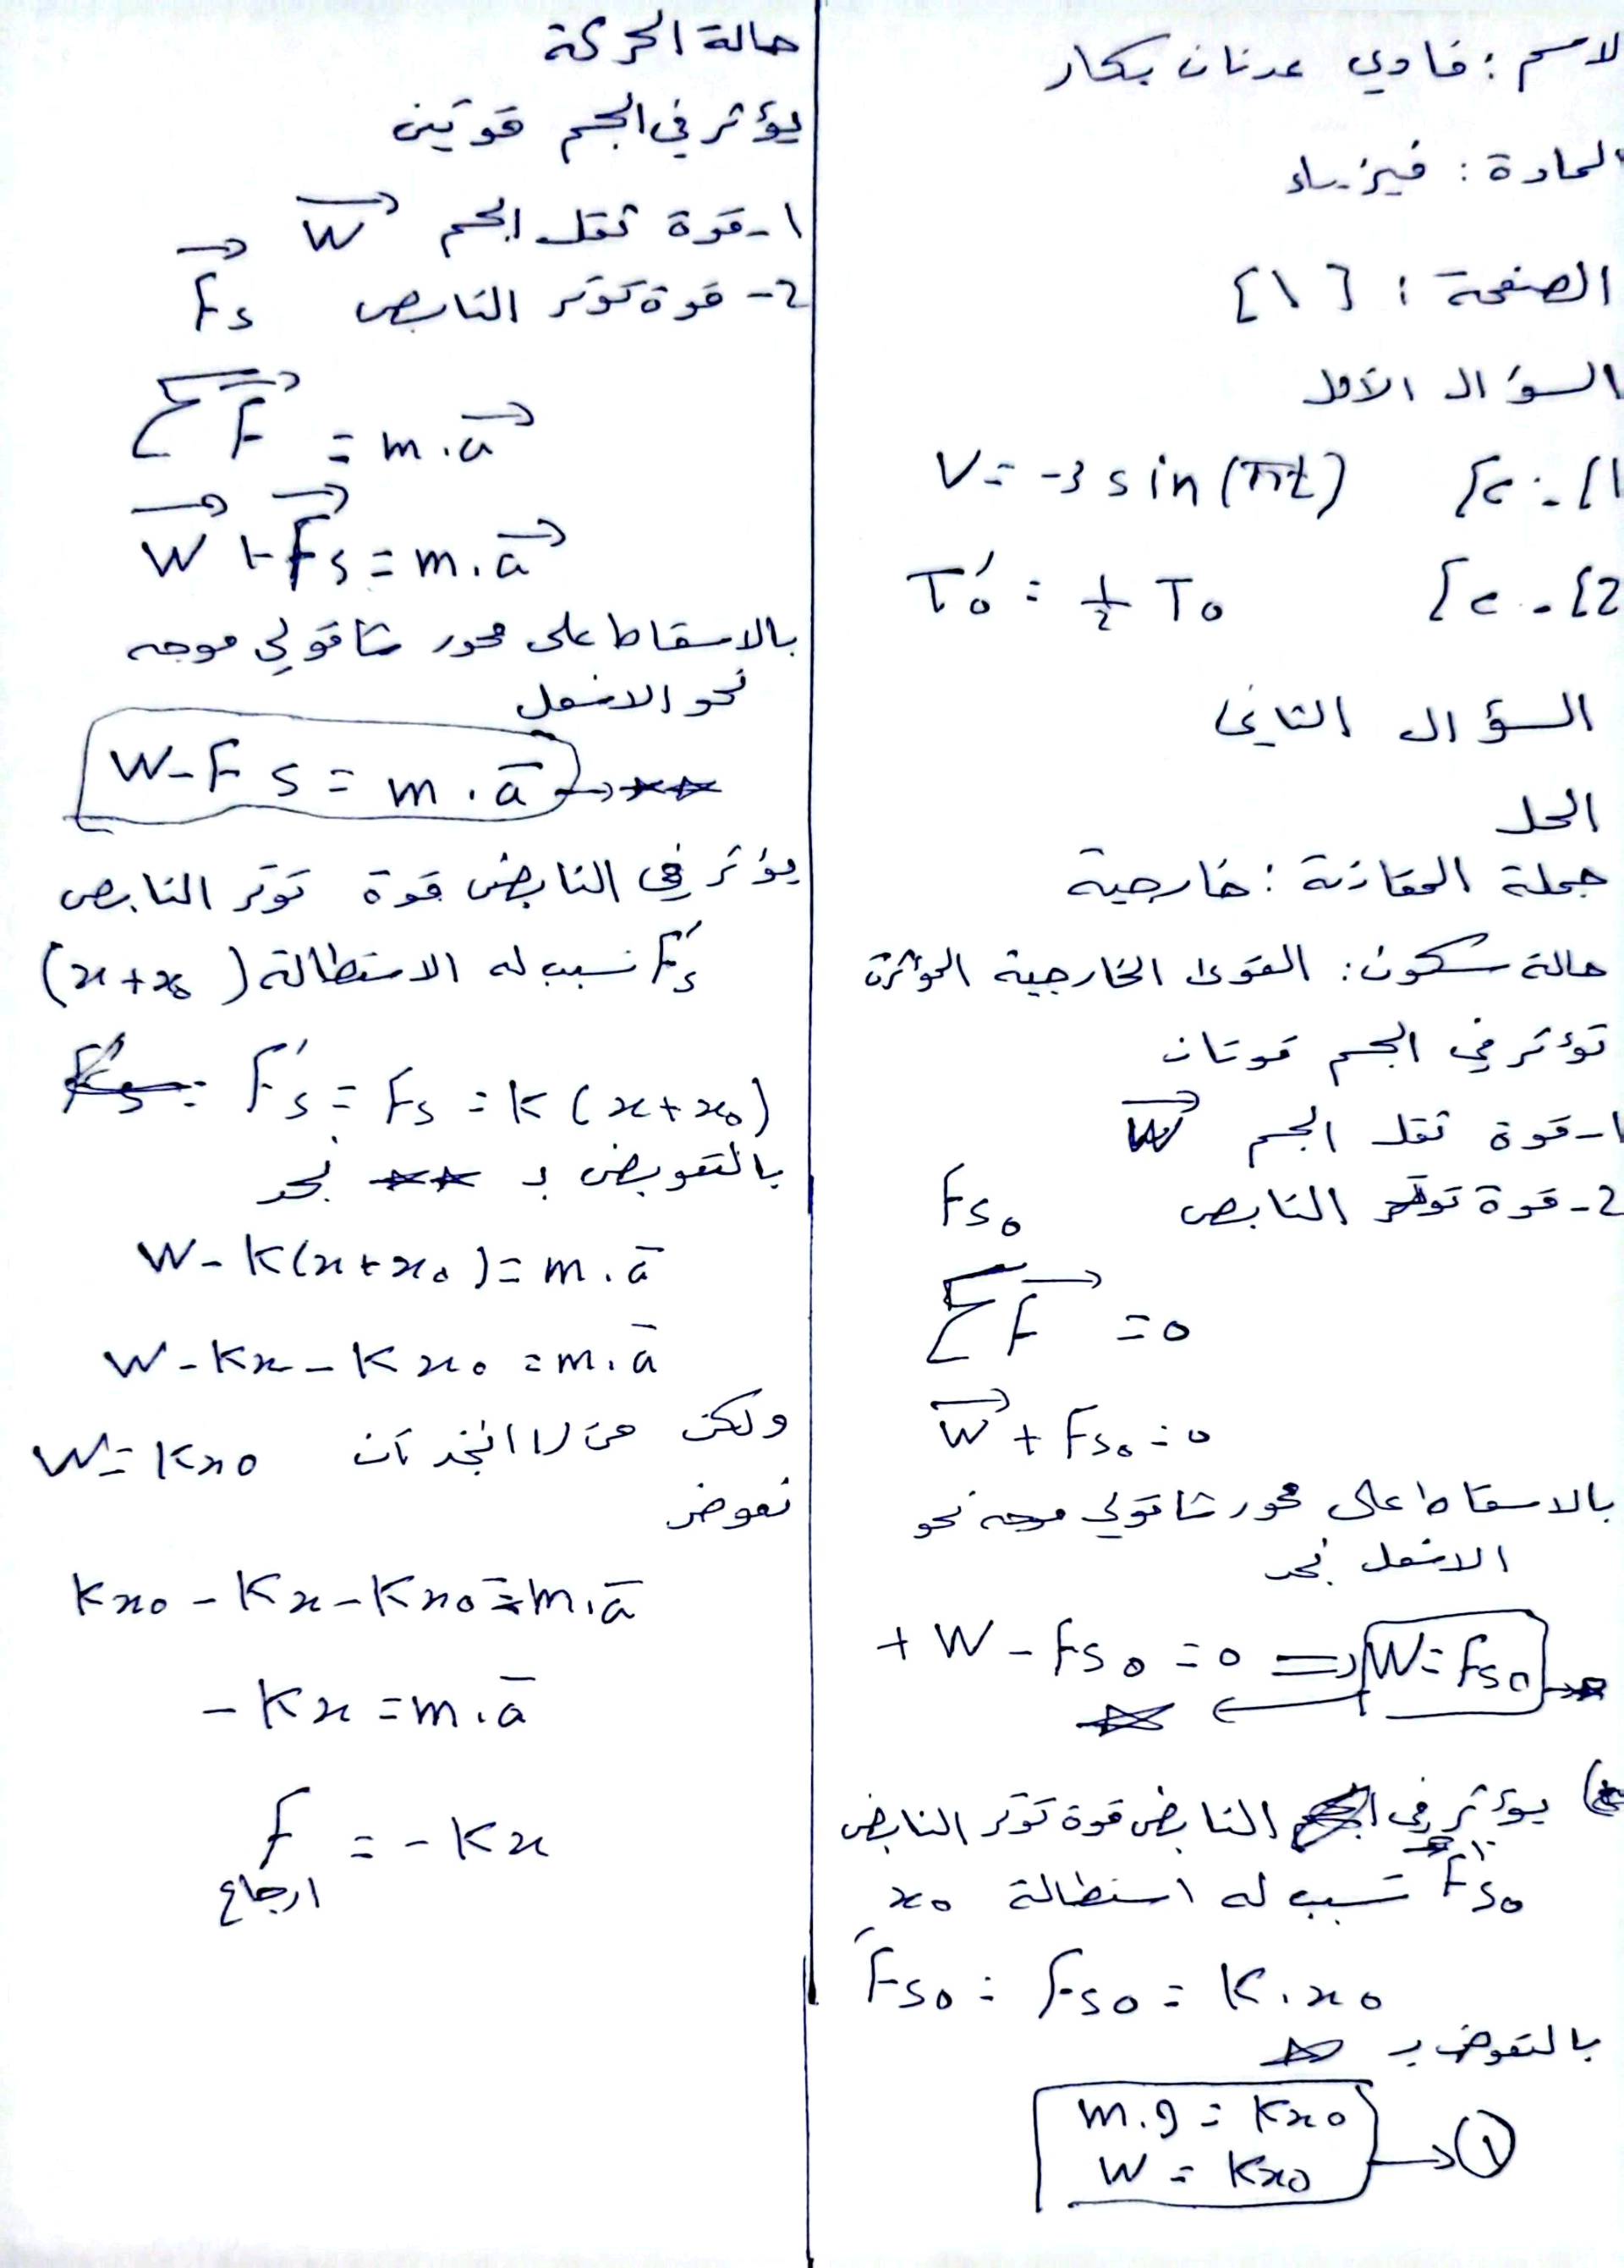 الاسم : فادي عدنان بكار
المادة : فيزياء
الصفحة : [ ١ ]
السؤال الأول
1] - c] V = -3 sin (πt)
2] - c] T₀' = 1/2 T₀
السؤال الثاني
الحل
جملة المقارنة : خارجية
حالة سكون : القوى الخارجية المؤثرة
تؤثر في الجسم قوتان
١- قوة ثقل الجسم W
2- قوة توتر النابض Fs₀
ΣF = 0
W + Fs₀ = 0
بالاسقاط على محور شاقولي موجه نحو
الاسفل نجد
+ W - Fs₀ = 0 ⇒ W = Fs₀
يؤثر في النابض قوة توتر النابض
F's₀ تسبب له استطالة x₀
F's₀ = Fs₀ = K . x₀
بالتعوض بـ ☆
m.g = Kx₀
W = Kx₀ → ①
حالة الحركة
يؤثر في الجسم قوتين
١- قوة ثقل الجسم W
2- قوة توتر النابض Fs
ΣF = m . a
W + Fs = m . a
بالاسقاط على محور شاقولي موجه
نحو الاسفل
W - Fs = m . a → ☆☆
يؤثر في النابض قوة توتر النابض
F's تسبب له الاستطالة (x + x₀)
F's = Fs = K (x + x₀)
بالتعويض بـ ☆☆ نجد
W - K(x + x₀) = m . a
W - Kx - Kx₀ = m . a
ولكن من نجد أن W = Kx₀
نعوض
Kx₀ - Kx - Kx₀ = m . a
- Kx = m . a
F = - Kx
ارجاع